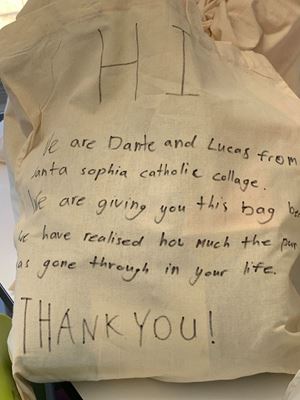 HI
We are Dante and Lucas from
santa sophia catholic collage.
We are giving you this bag
we have realised how much the
has gone through in your life.
THANK YOU!